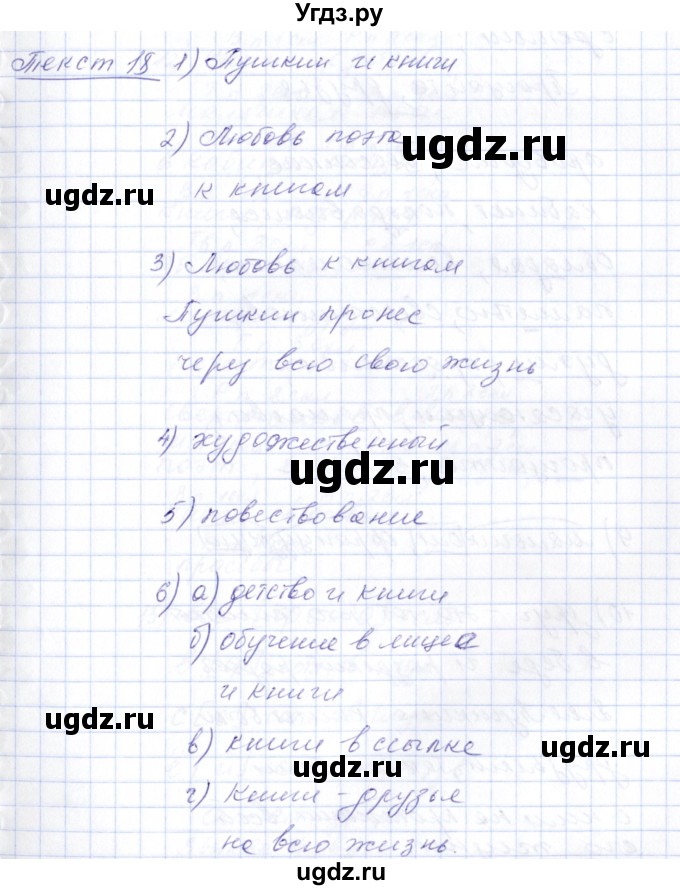 Угдз.ру
Текст 18 1) Пушкин и книги
2) Любовь поэта
к книгам
ugdz.ru
ugdz.ru
3) Любовь к книгам
Пушкин пронес
черу всю свою жизнь
4) художественный
ugdz.ru
5) повествование
6) а) детство и книги
б) обучение в лицеа
и книги
ugdz.ru
в) книги в ссылке
ugdz.ru
ugdz.ru
г) Книги - друзья
на всю жизнь.
ugdz.ru